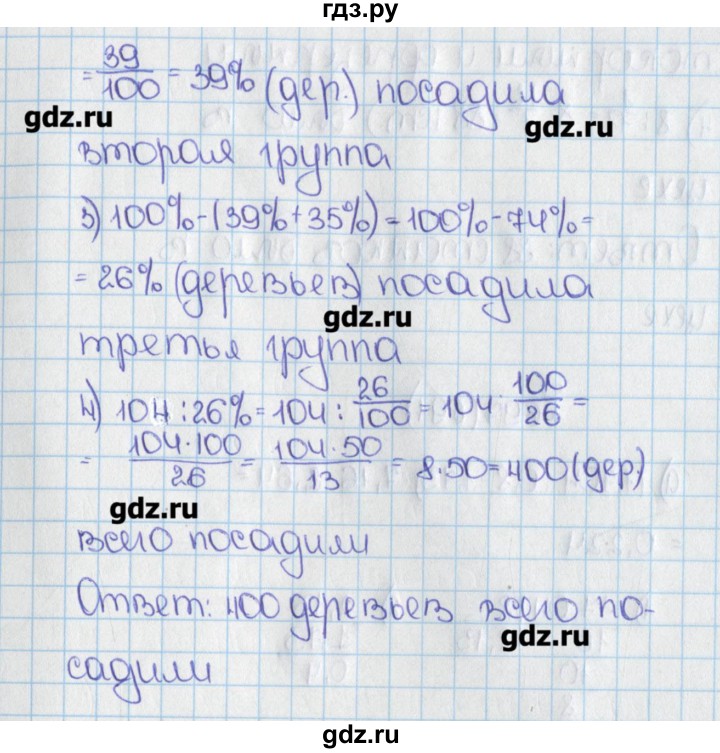 гдз.ру
= 39/100 = 39% (дер.) посадила
gdz.ru
gdz.ru
вторая группа
3) 100% - (39% + 35%) = 100% - 74% =
= 26% (деревьев) посадила
gdz.ru
третья группа
4) 104 : 26% = 104 : 26/100 = 104 · 100/26 =
= 104·100/26 = 104·50/13 = 8·50 = 400 (дер)
gdz.ru
всего посадили
Ответ: 400 деревьев всего по-
gdz.ru
садили
gdz.ru